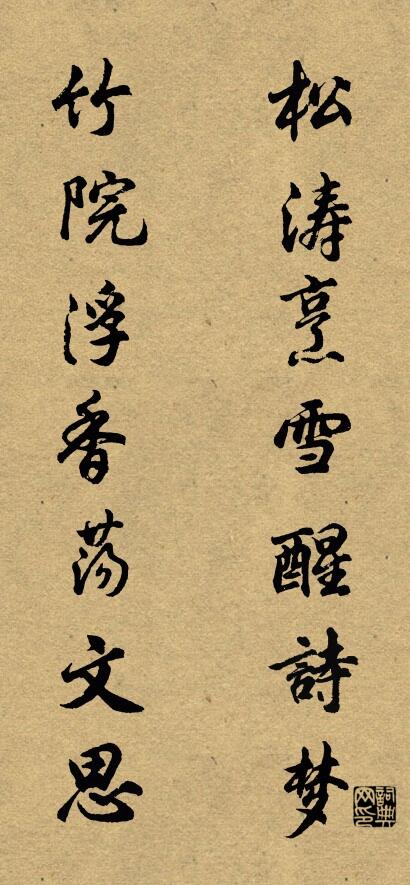 松涛烹雪醒詩梦
竹院浮香荡文思
詞典网印